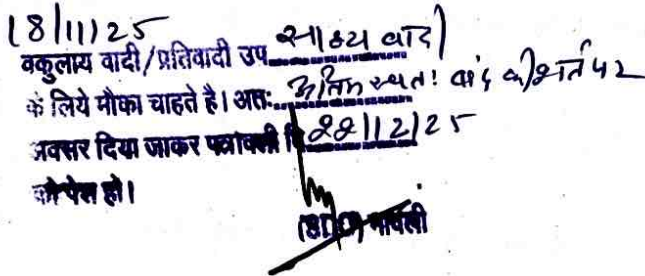 18/11/25
वकुलाय वादी/प्रतिवादी उप साक्ष्य वादी
के लिये मौका चाहते है। अतः अंतिम स्वतः बंद की शर्त पर
अवसर दिया जाकर पत्रावली दि 22/12/25
को पेश हो।